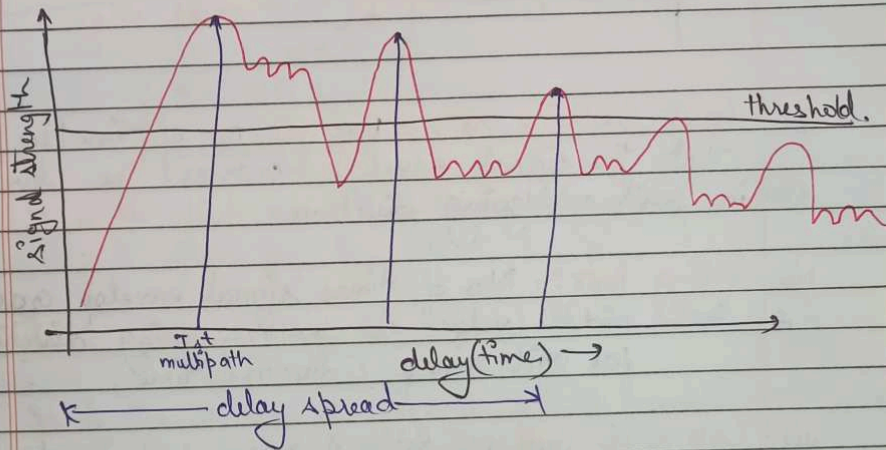 Signal strength
threshold.
Ist
multipath
delay(time) →
delay spread